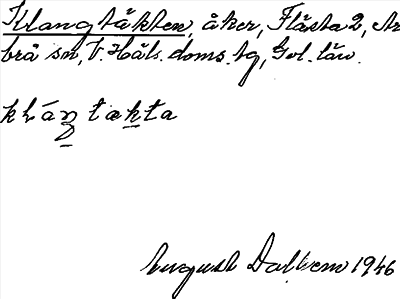 Klangtäkten, åker, Flästa 2, Ar
brå sn, V. Häls. doms. tg, Gvl. län.
kláŋ tækta
August Dalhem 1946